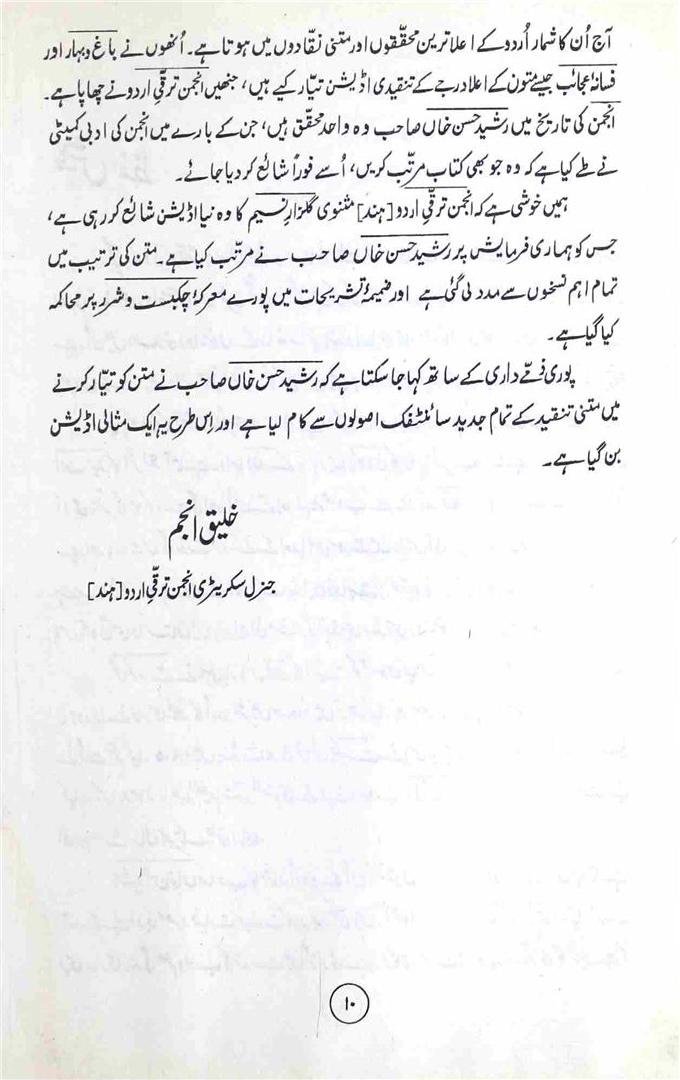 آج اُن کا شمار اُردو کے اعلا ترین محقّقوں اور متنی نقّادوں میں ہوتا ہے۔ اُنھوں نے باغ و بہار اور
فسانۂ عجائب جیسے متون کے اعلا درجے کے تنقیدی اڈیشن تیّار کیے ہیں، جنھیں انجمن ترقّیِ اردو نے چھاپا ہے۔
انجمن کی تاریخ میں رشید حسن خاں صاحب وہ واحد محقّق ہیں، جن کے بارے میں انجمن کی ادبی کمیٹی
نے طے کیا ہے کہ وہ جو بھی کتاب مرتّب کریں، اُسے فوراً شائع کر دیا جائے۔
ہمیں خوشی ہے کہ انجمن ترقّیِ اردو [ہند] مثنوی گلزارِ نسیم کا وہ نیا اڈیشن شائع کر رہی ہے،
جس کو ہماری فرمایش پر رشید حسن خاں صاحب نے مرتّب کیا ہے۔ متن کی ترتیب میں
تمام اہم نسخوں سے مدد لی گئی ہے اور ضمیمۂ تشریحات میں پورے معرکۂ چکبست و شرر پر محاکمہ
کیا گیا ہے۔
پوری ذمّے داری کے ساتھ کہا جا سکتا ہے کہ رشید حسن خاں صاحب نے متن کو تیّار کرنے
میں متنی تنقید کے تمام جدید سائنٹفک اصولوں سے کام لیا ہے اور اِس طرح یہ ایک مثالی اڈیشن
بن گیا ہے۔
خلیق انجم
جنرل سکریٹری انجمن ترقّیِ اردو [ہند]
۱۰